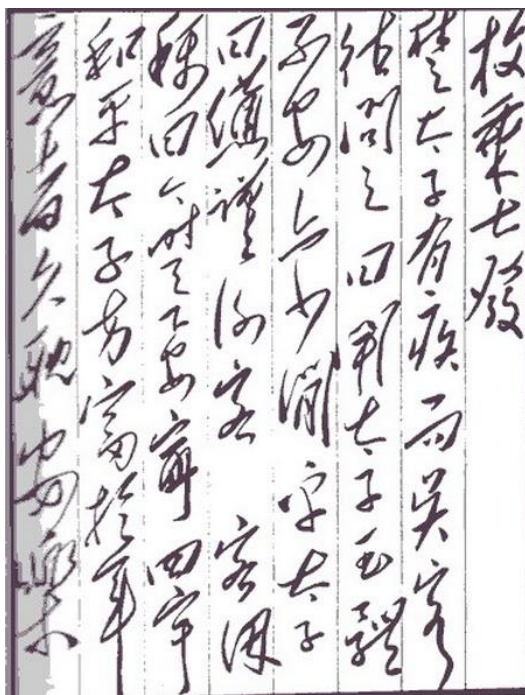 枚乘七發
楚太子有疾而吳客
往問之曰聞太子玉體
不安亦少間乎太子
曰憊謹謝客 客因
稱曰今時天下安寧四宇
和平太子方富於年
意者久耽安樂